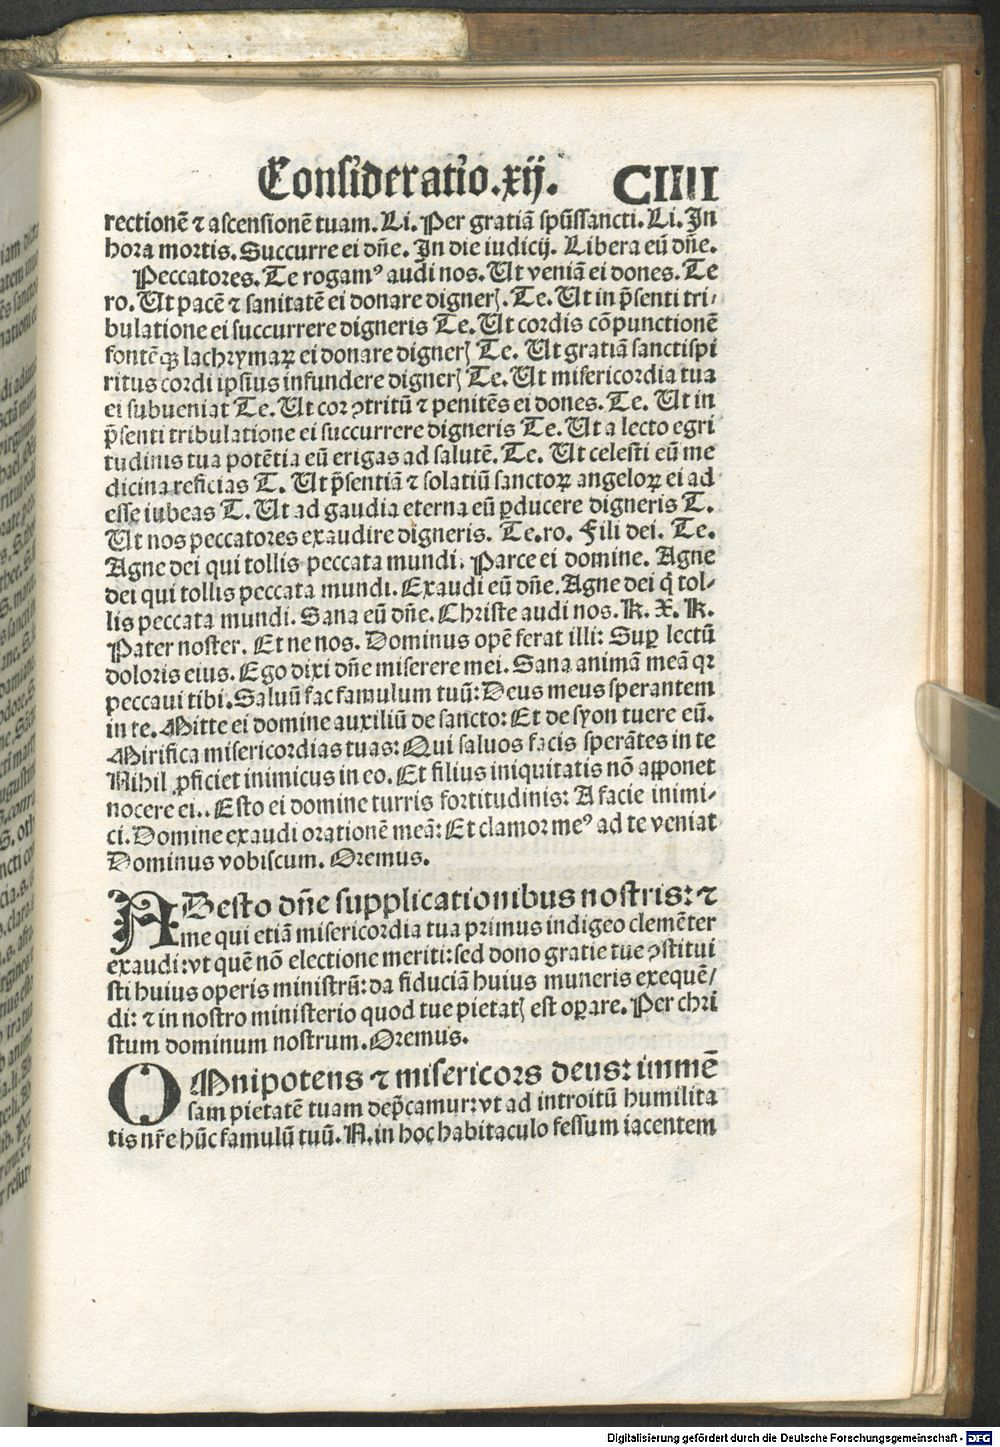 Consideratio.xij. CIIII
rectionē ⁊ ascensionē tuam. Li. Per gratiā spūssancti. Li. In
hora mortis. Succurre ei dn̄e. In die iudicij. Libera eū dn̄e.
Peccatores. Te rogamꝰ audi nos. Ut veniā ei dones. Te
ro. Ut pacē ⁊ sanitatē ei donare digneꝝ. Te. Ut in p̄senti tri⸗
bulatione ei succurrere digneris Te. Ut cordis cōpunctionē
fontēqꝫ lachrymaꝝ ei donare digneꝝ Te. Ut gratiā sanctispi
ritus cordi ipsius infundere digneꝝ Te. Ut misericordia tua
ei subueniat Te. Ut cor ꝯtritū ⁊ penitēs ei dones. Te. Ut in
p̄senti tribulatione ei succurrere digneris Te. Ut a lecto egri
tudinis tua potētia eū erigas ad salutē. Te. Ut celesti eū me
dicina reficias T. Ut p̄sentiā ⁊ solatiū sanctoꝝ angeloꝝ ei ad
esse iubeas T. Ut ad gaudia eterna eū ꝑducere digneris T.
Ut nos peccatores exaudire digneris. Te.ro. Fili dei. Te.
Agne dei qui tollis peccata mundi. Parce ei domine. Agne
dei qui tollis peccata mundi. Exaudi eū dn̄e. Agne dei q̄ tol⸗
lis peccata mundi. Sana eū dn̄e. Christe audi nos. K. X. K.
Pater noster. Et ne nos. Dominus opē ferat illi: Suꝑ lectū
doloris eius. Ego dixi dn̄e miserere mei. Sana animā meā qꝛ
peccaui tibi. Saluū fac famulum tuū: Deus meus sperantem
in te. Mitte ei domine auxiliū de sancto: Et de syon tuere eū.
Mirifica misericordias tuas: Qui saluos facis sperātes in te
Nihil ꝓficiet inimicus in eo. Et filius iniquitatis nō apponet
nocere ei.. Esto ei domine turris fortitudinis: A facie inimi⸗
ci. Domine exaudi orationē meā: Et clamor meꝰ ad te veniat
Dominus vobiscum. Oremus.
ADesto dn̄e supplicationibus nostris: ⁊
me qui etiā misericordia tua primus indigeo clemēter
exaudi: vt quē nō electione meriti: sed dono gratie tue ꝯstitui
sti huius operis ministrū: da fiduciā huius muneris exequē⸗
di: ⁊ in nostro ministerio quod tue pietaꝝ est oꝑare. Per chri
stum dominum nostrum. Oremus.
OMnipotens ⁊ misericors deus: immē
sam pietatē tuam dep̄camur: vt ad introitū humilita
tis nr̄e hūc famulū tuū. N. in hoc habitaculo fessum iacentem
Digitalisierung gefördert durch die Deutsche Forschungsgemeinschaft - DFG